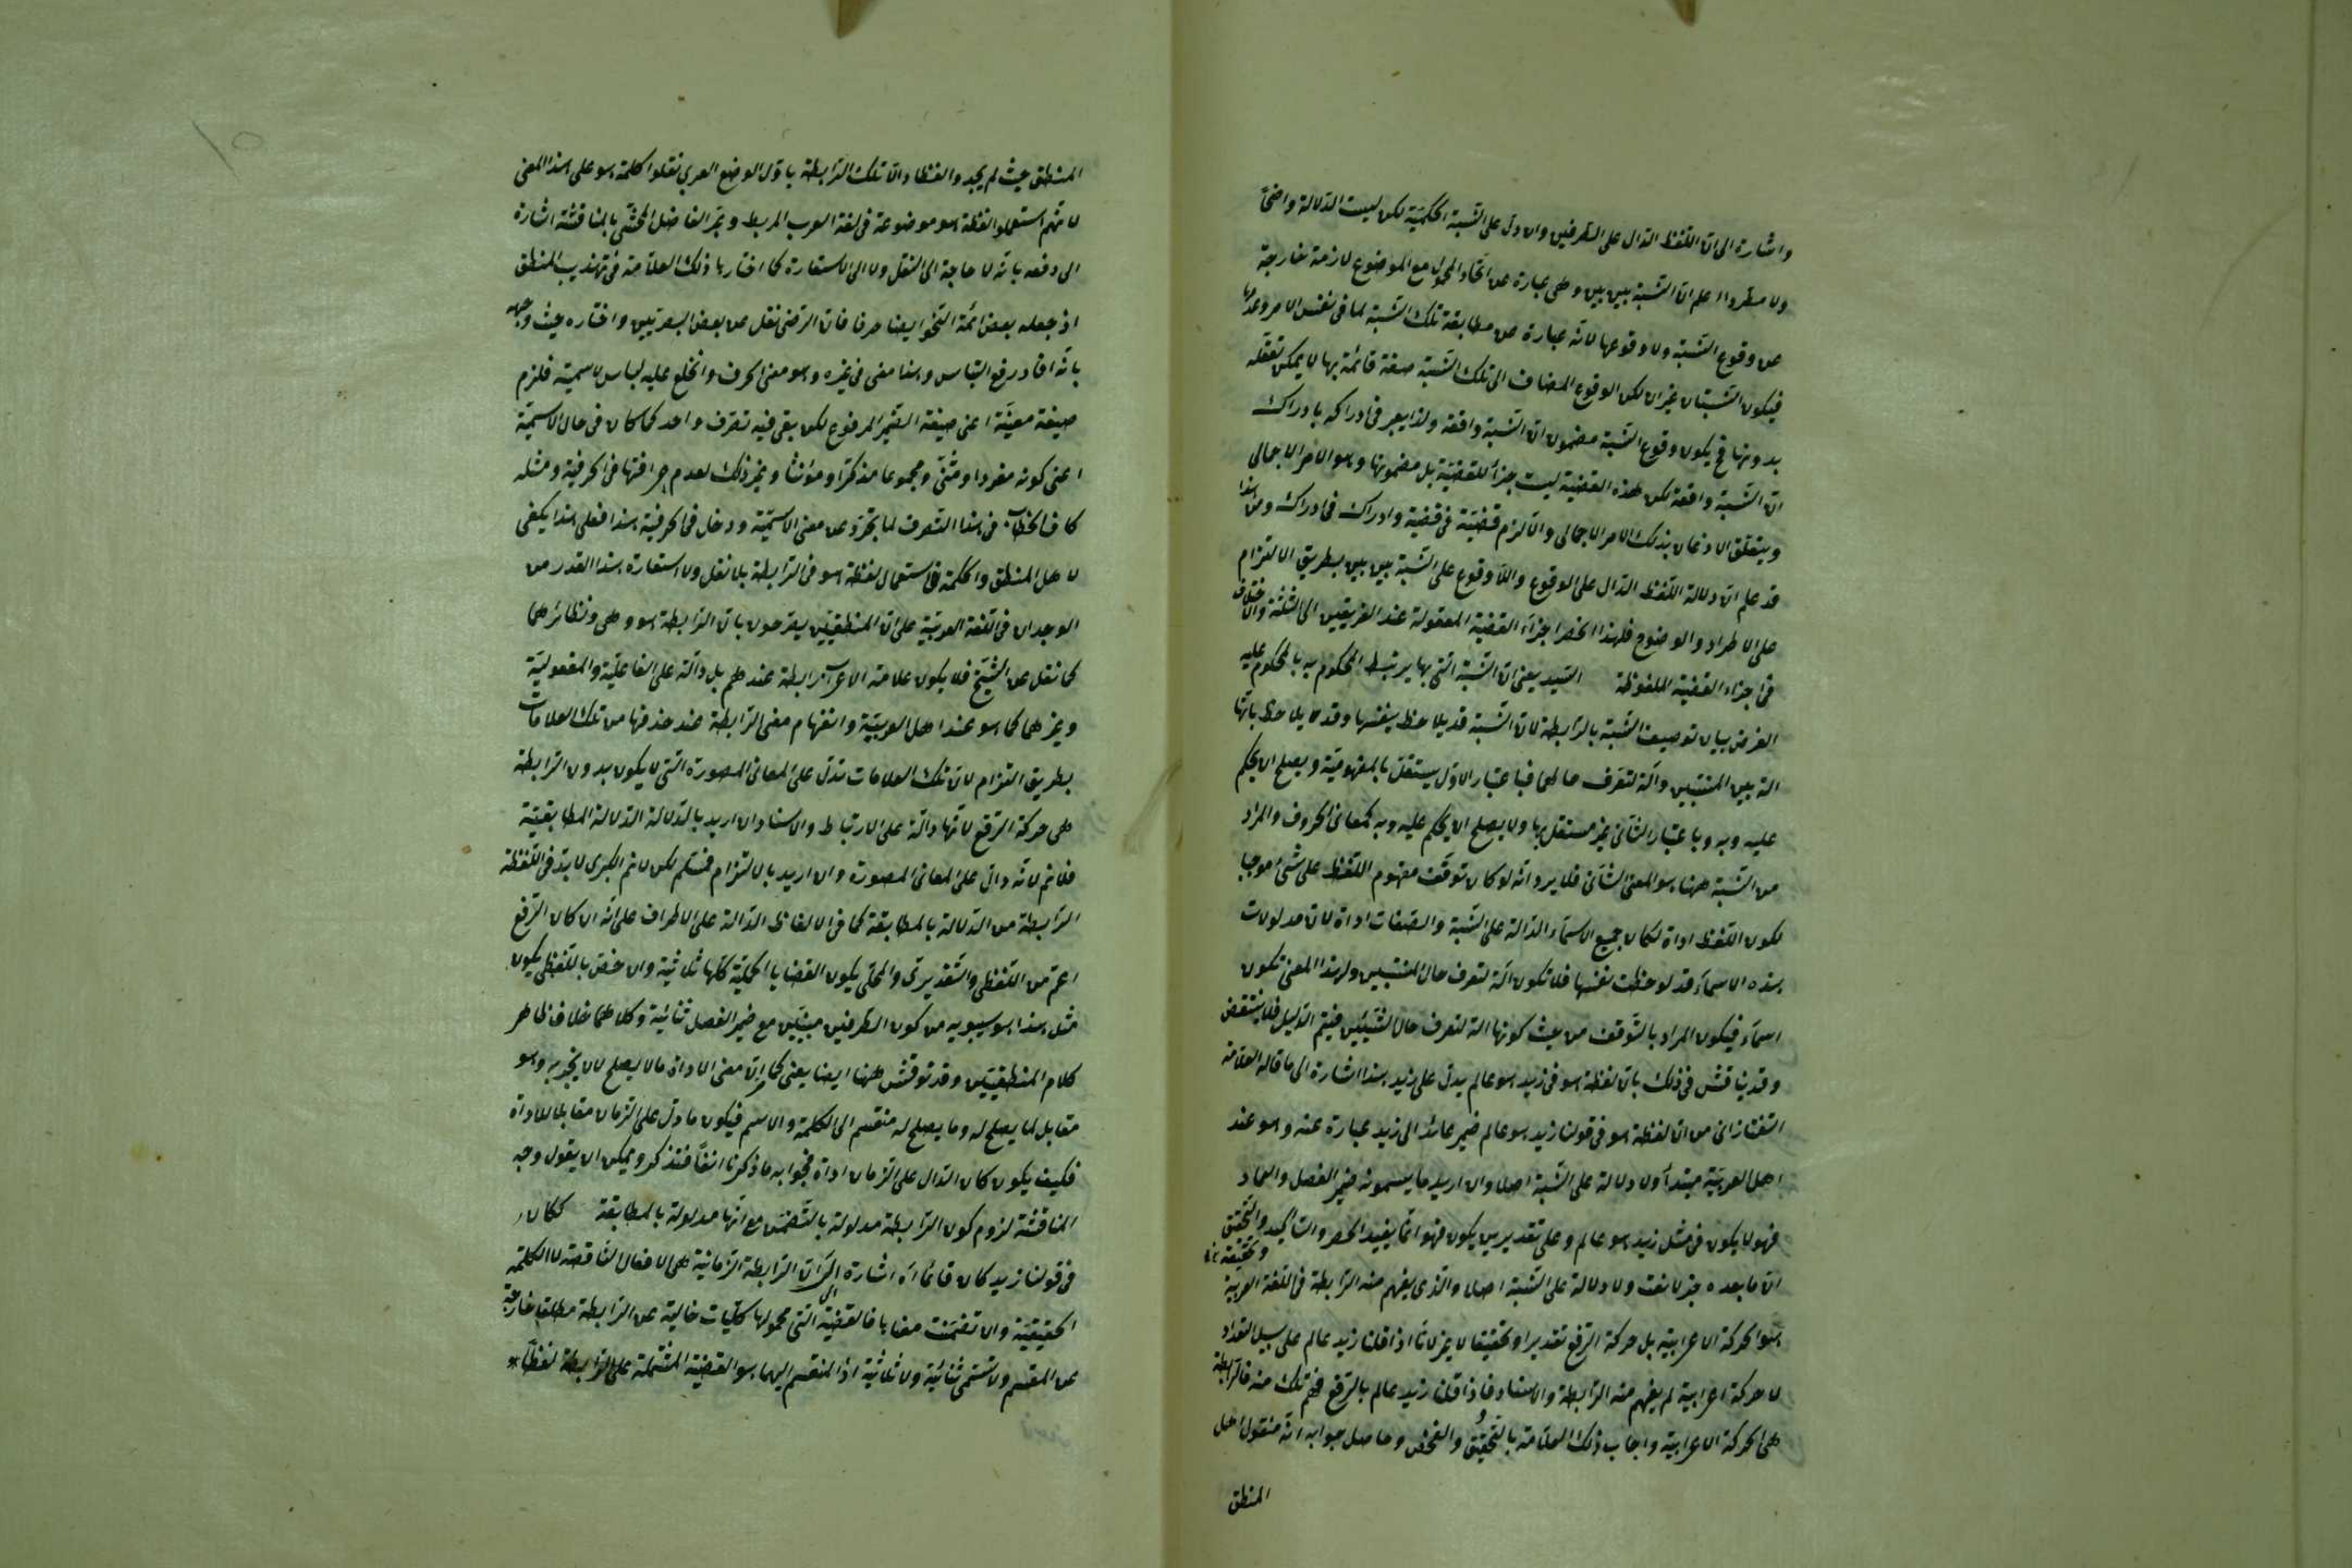 واشارة الى ان اللفظ الدال على الطرفين وان دل على النسبة الحكمية لكن ليست الدلالة واضحاً
ولا مطرداً اعلم ان النسبة بين بين وهى عبارة عن اتحاد المحمول مع الموضوع لازمة خارجة
عن وقوع النسبة ولا وقوعها لانه عبارة عن مطابقة تلك النسبة لما فى نفس الامر وعدمها
فيكون النسبتان غيران لكن الوقوع المضاف الى تلك النسبة صفة قائمة بها لا يمكن تعقله
بدونها فح يكون وقوع النسبة مضمون ان النسبة واقعة ولذا يعبر فى ادراكه بادراك
ان النسبة واقعة لكن هذه القضية ليست جزأ للقضية بل مضمونها وهو الامر الاجمالى
ويتعلق الاذعان بذلك الامر الاجمالى والا لزم قضية فى قضية وادراك فى ادراك ومن هذا
قد علم ان دلالة اللفظ الدال على الوقوع واللاوقوع على النسبة بين بين بطريق الالتزام
على الاطراد والوضوح فلهذا انحصر اجزاء القضية المعقولة عند الفريقين الى الثلثة والاختلاف
فى اجزاء القضية الملفوظة السيد يعنى ان النسبة التى بها يرتبط المحكوم به بالمحكوم عليه
الغرض بيان توصيف النسبة بالرابطة لان النسبة قد يلاحظ بنفسها وقد يلاحظ بانها
الة بين المنتسبين وآلة لتعرف حالهما فباعتبار الاول يستقل بالمفهومية ويصلح لان يحكم
عليه وبه وباعتبار الثانى غير مستقل بها ولا يصلح لان يحكم عليه وبه كمعانى الحروف والمراد
من النسبة ههنا هو المعنى الثانى فلا يرد انه لو كان توقف مفهوم اللفظ على شئ موجبا
لكون اللفظ اداة لكان جميع الاسماء الدالة على النسبة والصفات اداة لان مدلولات
هذه الاسماء قد لوحظت نفسها فلا تكون آلة لتعرف حال المنتسبين ولهذا المعنى تكون
اسماء فيكون المراد بالتوقف من حيث كونها الة لتعرف حال الشيئين فيتم الدليل فلا ينتقض
وقد يناقش فى ذلك بان لفظة هو فى زيد هو عالم يدل على زيد هذا اشارة الى ما قاله العلامة
التفتازانى من ان لفظة هو فى قولنا زيد هو عالم ضمير عائد الى زيد عبارة عنه وهو عند
اهل العربية مبتدأ ولا دلالة على النسبة اصلا وان اريد ما يسمونه ضمير الفصل والعماد
فهو لا يكون فى مثل زيد هو عالم وعلى تقدير يكون فهو انما يفيد الحصر والتاكيد والتحقيق
ان ما بعده خبر لا نعت ولا دلالة على النسبة اصلا والذى يفهم منه الرابطة فى اللغة العربية
هو الحركة الاعرابية بل حركة الرفع تقديرا وتحقيقا لا غير لانا اذا قلنا زيد عالم على سبيل التعداد
لا حركة اعرابية لم يفهم منه الرابطة والاسناد فاذا قلنا زيد عالم بالرفع فهم تلك منه فالرابطة
هى الحركة الاعرابية واجاب ذلك العلامة بالتحقيق والفحص وحاصل جوابه انه منقول اهل
المنطق
المنطق حيث لم يجدوا لفظا دالا تلك الرابطة باول الوضع العربى نقلوا كلمة هو على هذا المعنى
لانهم استعملوا لفظة هو موضوعة فى لغة العرب للربط وعبر الفاضل المحشى بالمناقشة اشارة
الى دفعه بانه لا حاجة الى النقل ولا الى الاستعارة كما اختارها ذلك العلامة فى تهذيب المنطق
اذ جعله بعض ائمة النحو ايضا حرفا فان الرضى نقل عن بعض البصريين واختاره حيث وجهه
بانه افاد رفع التباس وهذا معنى فى غيره وهو معنى الحرف وانخلع عليه لباس الاسمية فلزم
صيغة معينة اعنى صيغة الضمير المرفوع لكن بقى فيه تصرف واحد كما كان فى حال الاسمية
اعنى كونه مفردا ومثنى ومجموعا مذكرا ومؤنثا وغير ذلك لعدم عرافتها فى الحرفية ومثله
كاف الخطاب فى هذا التصرف لما تجرد عن معنى الاسمية ودخل فى الحرفية هذا فعلى هذا يكفى
لاهل المنطق والحكمة فى استعمال لفظة هو فى الرابطة بلا نقل ولا استعارة هذا القدر من
الوجدان فى اللغة العربية على ان المنطقيين يصرحون بان الرابطة هو وهى ونظائرهما
كما نقل عن الشيخ فلا يكون علامة الاعراب رابطة عندهم بل دالة على الفاعلية والمفعولية
وغيرهما كما هو عند اهل العربية وانفهام معنى الرابطة عند حذفها من تلك العلامات
بطريق التزام لان تلك العلامات تدل على المعانى المصورة التى لا يكون بدون الرابطة
هى حركة الرفع لانها دالة على الارتباط والاسناد ان اريد بالدلالة الدلالة المطابقية
فلا نم لانه دال على المعانى المصورة وان اريد بالالتزام فمسلم لكن لا نم الكبرى لابد فى اللفظة
الرابطة من الدلالة بالمطابقة كما فى الالفاظ الدالة على الاطراف على انه ان كان الرفع
اعم من اللفظى والتقديرى والمحلى يكون القضايا الحملية كلها ثلاثية وان خص باللفظى يكون
مثل هذا هو سيبويه من كون الطرفين مبنيين مع ضمير الفصل ثنائية وكلاهما خلاف ظاهر
كلام المنطقيين وقد نوقش ههنا ايضا يعنى كما ان معنى الاداة ما لا يصلح لان يخبر به وهو
مقابل لما يصلح له وما يصلح له منقسم الى الكلمة والاسم فيكون ما دل على الزمان مقابلا للاداة
فكيف يكون كان الدال على الزمان اداة فجوابه ما ذكرنا انفاً فتذكر ويمكن ان يقول وجه
المناقشة لزوم كون الرابطة مدلولة بالتضمن مع انها مدلولة بالمطابقة ككان
فى قولنا زيد كان قائما اه اشارة الى ان الرابطة الزمانية هى الافعال الناقصة لا الكلمة
الحقيقية وان تضمنت معناها فالقضية التى محمولها كليات خالية عن الرابطة مطلقا خارجة
عن المقسم ولا تسمى ثنائية ولا ثلاثية اذ المنقسم اليهما هو القضية المشتملة على الرابطة لفظاً